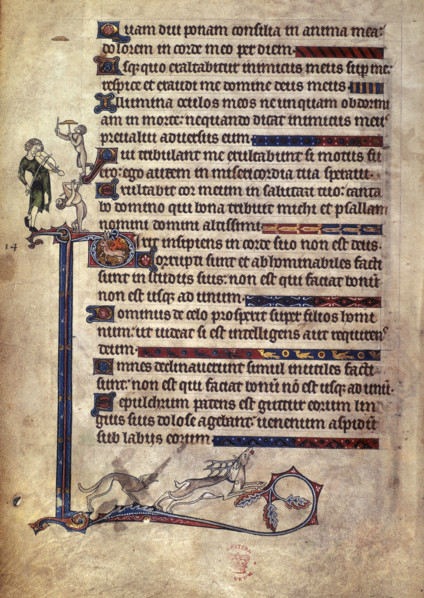 Quam diu ponam consilia in anima mea:
dolorem in corde meo per diem.
Usq; quo exaltabitur inimicus meus sup me:
respice et exaudi me domine deus meus
Illumina oculos meos ne unquam obdormi
am in morte: nequando dicat inimicus meus
preualui aduersus eum
Qui tribulant me exultabunt si motus fu
ero: ego autem in misericordia tua speraui.
Exultabit cor meum in salutari tuo: canta
bo domino qui bona tribuit michi et psallam
nomini domini altissimi
14
Dixit insipiens in corde suo non est deus.
Corrupti sunt et abhominabiles facti
sunt in studiis suis: non est qui faciat bonū
non est usq; ad unum.
Dominus de celo prospexit super filios homi
num: ut uideat si est intelligens aut requirens
deum.
Omnes declinauerunt simul inutiles facti
sunt: non est qui faciat bonū nō est usq; ad unū.
Sepulchrum patens est guttur eorum lin
guis suis dolose agebant: uenenum aspidū
sub labiis eorum